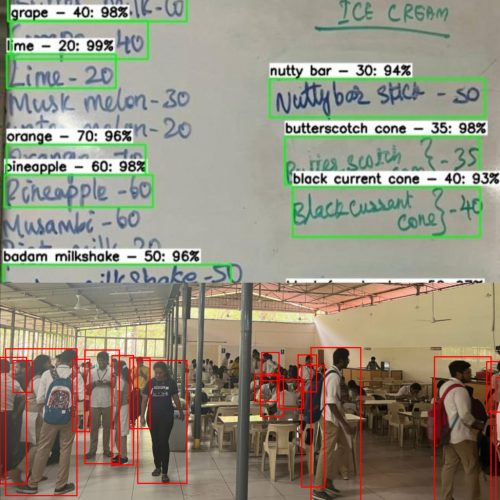 grape - 40: 98%
lime - 20: 99%
40
Lime - 20
Musk melon - 30
melon - 20
orange - 70: 96%
pineapple - 60: 98%
Pineapple - 60
Musambi - 60
badam milkshake - 50: 96%
milkshake - 50
ICE CREAM
nutty bar - 30: 94%
Nutty bar stick - 50
butterscotch cone - 35: 98%
scotch } - 35
black current cone - 40: 93%
Black cussent
cone } - 40